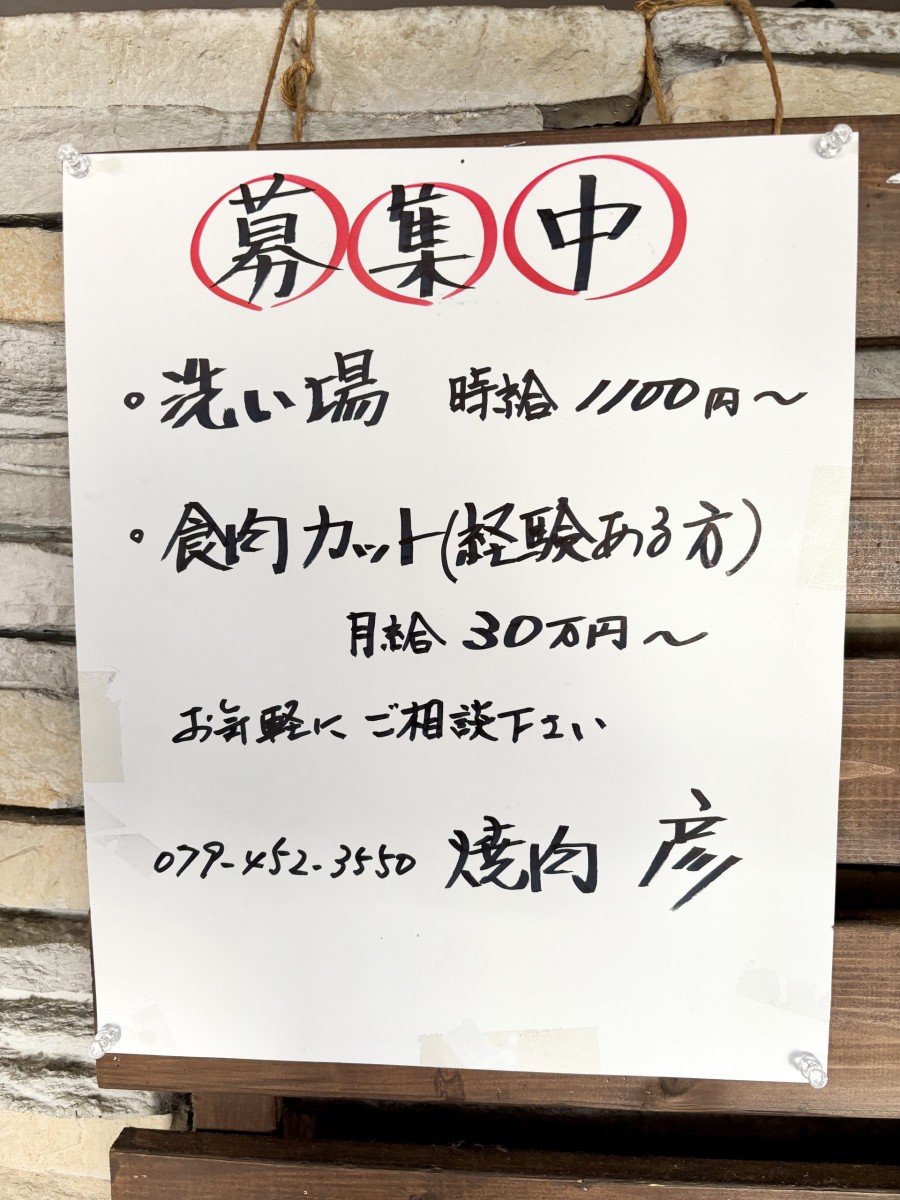 募集中
。洗い場 時給 1100円〜
。食肉カット(経験ある方)
月給 30万円〜
お気軽にご相談下さい
079-452-3550 焼肉 彦